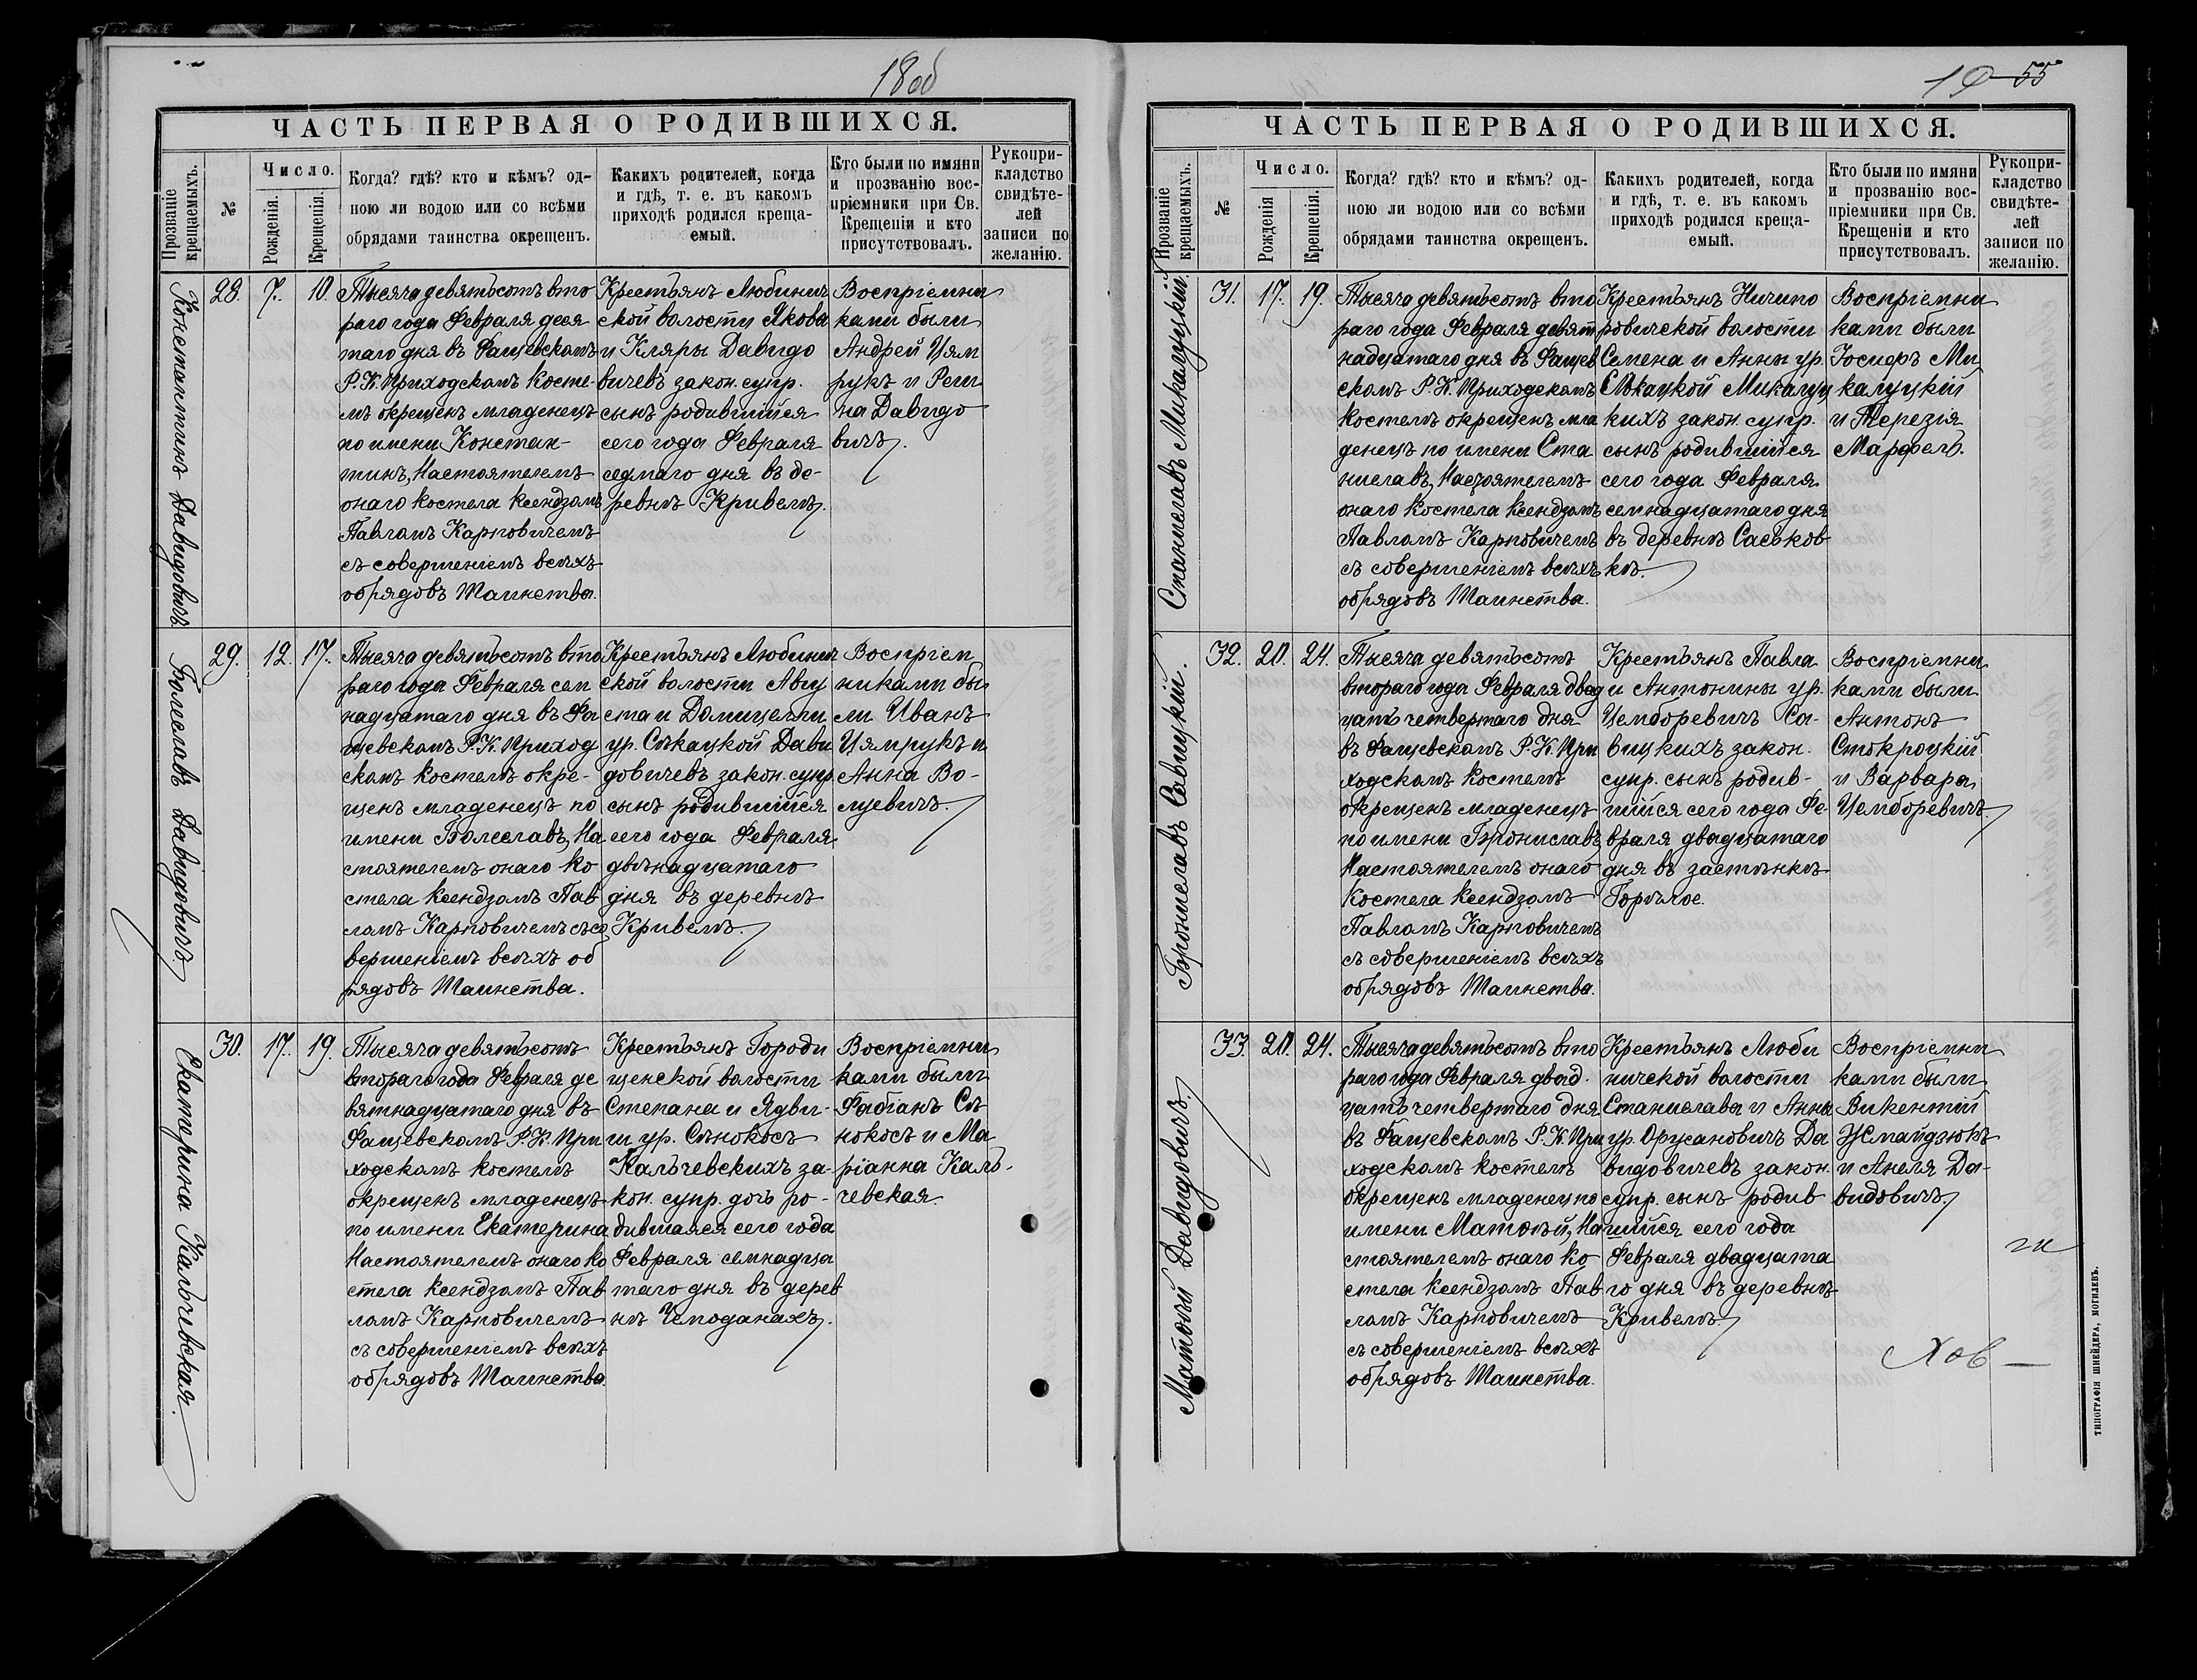 18 об
ЧАСТЬ ПЕРВАЯ О РОДИВШИХСЯ.
Прозваніе крещаемыхъ.
№
Число.
Рожденія.
Крещенія.
Когда? гдѣ? кто и кѣмъ? од-
ною ли водою или со всѣми
обрядами таинства окрещенъ.
Какихъ родителей, когда
и гдѣ, т. е. въ какомъ
приходѣ родился креща-
емый.
Кто были по имяни
и прозванію вос-
пріемники при Св.
Крещеніи и кто
присутствовалъ.
Рукопри-
кладство
свидѣте-
лей
записи по
желанію.
Константинъ Давидовичъ.
28.
7.
10.
Тысяча девятьсотъ вто
раго года Февраля деся
таго дня въ Фащевскомъ
Р. К. Приходскомъ косте-
лѣ окрещенъ младенецъ
по имени Констан-
тинъ, Настоятелемъ
онаго костела ксендзомъ
Павломъ Карповичемъ
съ совершеніемъ всѣхъ
обрядовъ Таинства.
Крестьянъ Любинич
ской волости Якова
и Кляры Давидо
вичевъ закон. супр.
сынъ родившійся
сего года Февраля
седмаго дня въ де-
ревнѣ Кривелѣ.
Воспріемни
ками были
Андрей Цям
рукъ и Реги
на Давидо
вичъ.
Болеславъ Давидовичъ
29.
12.
17.
Тысяча девятьсотъ вто
раго года Февраля сем
надцатаго дня въ Фа
щевскомъ Р. К. Приход
скомъ костелѣ окре-
щенъ младенецъ по
имени Болеславъ, На
стоятелемъ онаго ко
стела ксендзомъ Пав
ломъ Карповичемъ съ со
вершеніемъ всѣхъ об
рядовъ Таинства.
Крестьянъ Любинич
ской волости Авгу
ста и Домицелли
ур. Сѣкацкой Дави
довичевъ закон. супр
сынъ родившійся
сего года Февраля
двѣнадцатаго
дня въ деревнѣ
Кривелѣ.
Воспріем
никами бы
ли Иванъ
Цямрукъ и
Анна Во-
лцевичъ.
Екатерина Кальчевская.
30.
17.
19.
Тысяча девятьсотъ
втораго года Февраля де
вятнадцатаго дня въ
Фащевскомъ Р. К. При
ходскомъ костелѣ
окрещенъ младенецъ
по имени Екатерина
Настоятелемъ онаго ко
стела ксендзомъ Пав
ломъ Карповичемъ
съ совершеніемъ всѣхъ
обрядовъ Таинства.
Крестьянъ Городи
щенской волости
Степана и Ядви-
ги ур. Сѣнокосъ
Кальчевскихъ за-
кон. супр. дочь ро-
дившаяся сего года
Февраля семнадца
таго дня въ дерев
нѣ Чемоданахъ.
Воспріемни
ками были
Фабіанъ Сѣ
нокосъ и Ма
ріанна Каль-
чевская.
19 55
ЧАСТЬ ПЕРВАЯ О РОДИВШИХСЯ.
Прозваніе крещаемыхъ.
№
Число.
Рожденія
Крещенія.
Когда? гдѣ? кто и кѣмъ? од-
ною ли водою или со всѣми
обрядами таинства окрещенъ.
Какихъ родителей, когда
и гдѣ, т. е. въ какомъ
приходѣ родился креща-
емый.
Кто были по имяни
и прозванію вос-
пріемники при Св.
Крещеніи и кто
присутствовалъ.
Рукопри-
кладство
свидѣте-
лей
записи по
желанію.
Станиславъ Микалуцкій.
31.
17.
19.
Тысяча девятьсотъ вто
раго года Февраля девят
надцатаго дня въ Фащев
скомъ Р. К. Приходскомъ
костелѣ окрещенъ мла
денецъ по имени Ста
ниславъ, Настоятелемъ
онаго костела ксендзомъ
Павломъ Карповичемъ
съ совершеніемъ всѣхъ
обрядовъ Таинства.
Крестьянъ Ничипо
ровичской волости
Семена и Анны ур.
Сѣкацкой Микалуц
кихъ закон. супр.
сынъ родившійся
сего года Февраля
семнадцатаго дня
въ деревнѣ Саськов
кѣ.
Воспріемни
ками были
Іосифъ Ми
калуцкій
и Терезія
Марфель.
Брониславъ Савицкій.
32.
20.
24.
Тысяча девятьсотъ
втораго года Февраля двад
цать четвертаго дня
въ Фащевскомъ Р. К. При
ходскомъ костелѣ
окрещенъ младенецъ
по имени Брониславъ
Настоятелемъ онаго
костела ксендзомъ
Павломъ Карповичемъ
съ совершеніемъ всѣхъ
обрядовъ Таинства.
Крестьянъ Павла
и Антонины ур.
Цемборевичъ Са-
вицкихъ закон.
супр. сынъ родив-
шійся сего года Фе-
враля двадцатаго
дня въ застѣнкѣ
Горѣлое.
Воспріемни
ками были
Антонъ
Стокроцкій
и Варвара
Цемборевичъ.
Матѳѣй Давидовичъ.
33.
20.
24.
Тысяча девятьсотъ вто
раго года Февраля двад.
цать четвертаго дня
въ Фащевскомъ Р. К. При
ходскомъ костелѣ
окрещенъ младенецъ по
имени Матѳѣй, На
стоятелемъ онаго ко
стела ксендзомъ Пав
ломъ Карповичемъ
съ совершеніемъ всѣхъ
обрядовъ Таинства.
Крестьянъ Люби
ничской волости
Станислава и Анны
ур. Орусановичъ Да
видовичевъ закон.
супр. сынъ родив
шійся сего года
Февраля двадцата
го дня въ деревнѣ
Кривелѣ.
Воспріемни
ками были
Викентій
Жмайдзюкъ
и Анеля Да-
видовичъ.
ТИПОГРАФІЯ ШНЕЙДЕРА, МОГИЛЕВЪ.